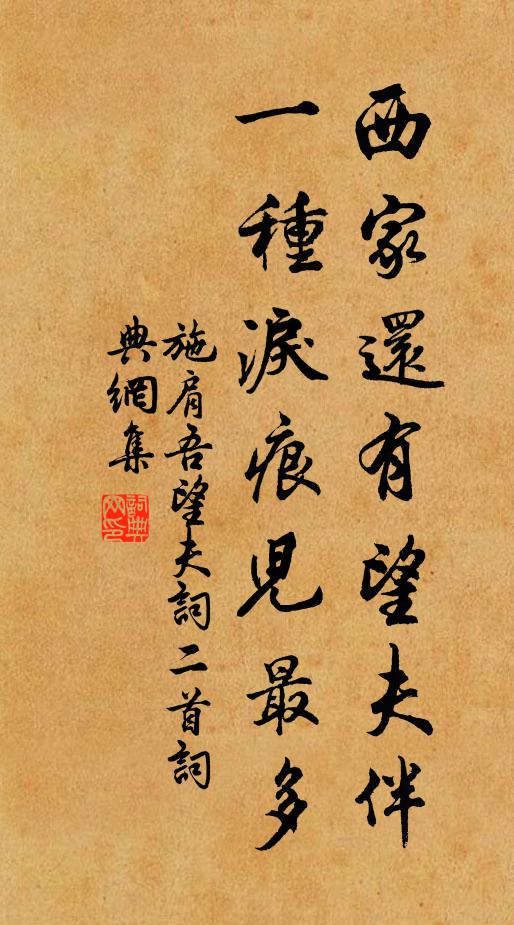 西家還有望夫伴
一種淚痕兒最多
施肩吾望夫詞二首詞
典網集
詞典
网印